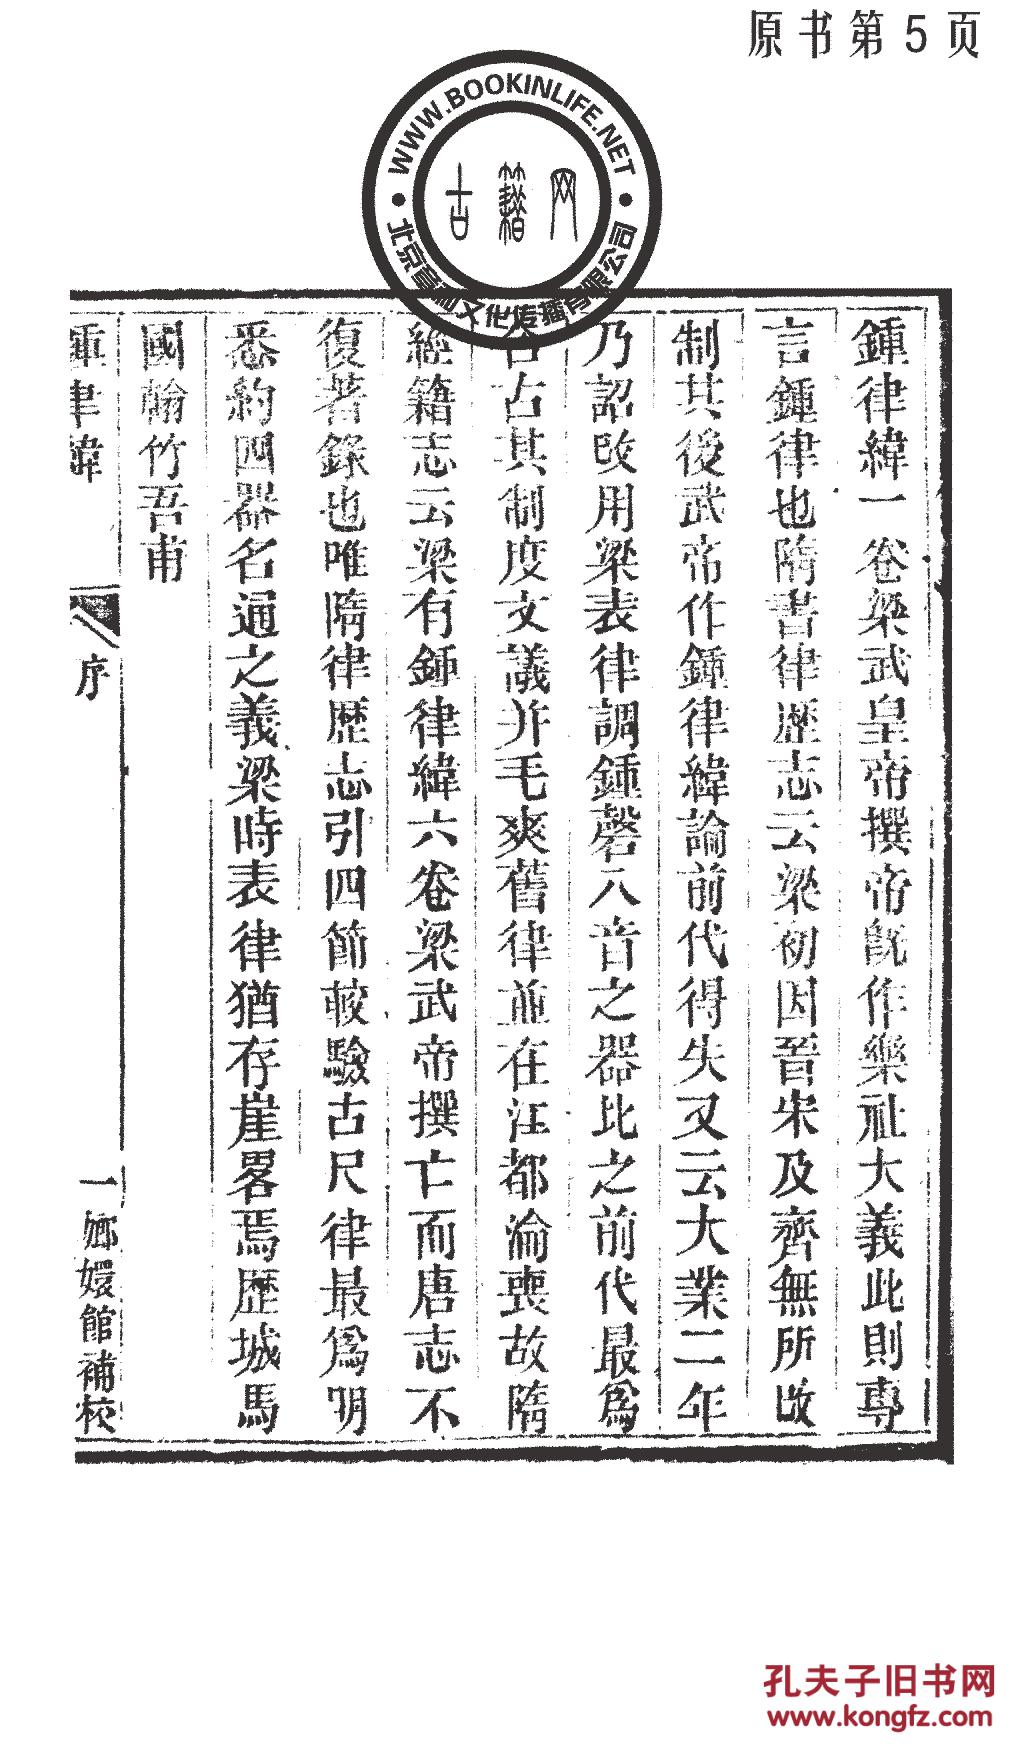 原书第5页
WWW.BOOKINLIFE.NET
古籍网
北京 文化传播有限公司
鍾律緯一卷梁武皇帝撰帝旣作樂社大義此則專
言鍾律也隋書律歷志云梁初因晉宋及齊無所改
制其後武帝作鍾律緯論前代得失又云大業二年
乃詔改用梁表律調鍾磬八音之器比之前代最爲
合古其制度文議并毛爽舊律並在江都淪喪故隋
經籍志云梁有鍾律緯六卷梁武帝撰亡而唐志不
復著錄也唯隋律歷志引四節較驗古尺律最爲明
悉約四器名通之義梁時表律猶存崖畧焉歷城馬
國翰竹吾甫
鍾律緯 序 一 嫏嬛館補校
孔夫子旧书网
www.kongfz.com